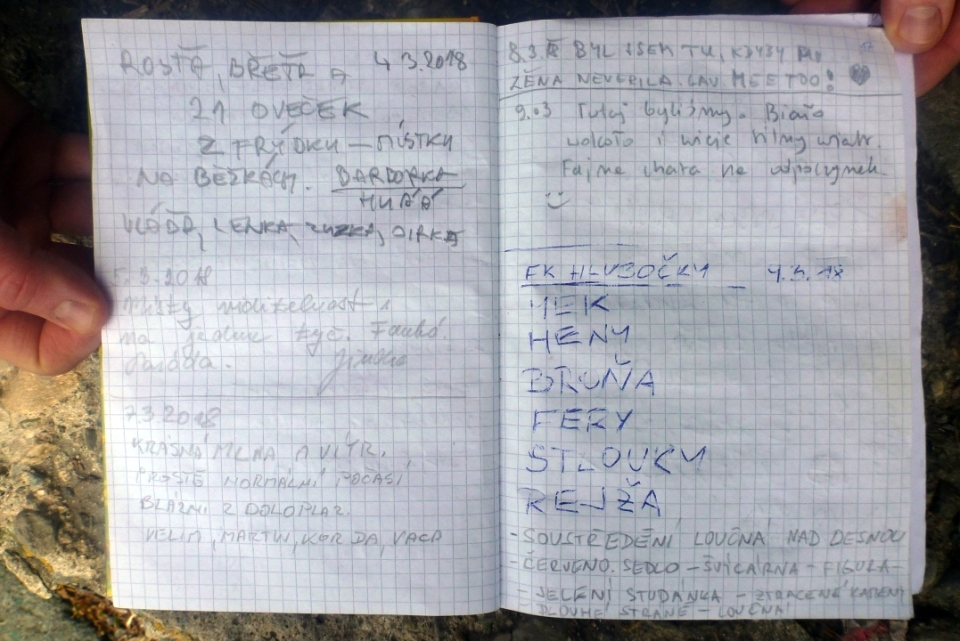 ROSŤA, BŘEŤA A 4.3.2018
21 OVEČEK
Z FRÝDKU – MÍSTKU
NA BĚŽKÁCH. BARBORKA
HURÁÁ
VLÁĎA, LENKA, ZUZKA, JIRKA
5.3.2018
Místy viditelnost 1
na jednu tyč. Fouká.
Paráda.
7.3.2018
KRÁSNÁ MLHA A VÍTR.
PROSTĚ NORMÁLNÍ POČASÍ
BLÁZNI Z DOLOPLAZ.
VELIM, MARTIN, KORDA, VACA
8.3.18 BYL JSEM TU, KDYBY MI
ŽENA NEVĚŘILA. LAV. MEETOO!
9.03 Tutaj byliśmy. Biało
wokoło i wieje zimny wiatr.
Fajna chata na odpoczynek
FK HLUBOČKY 9.3.18
HEK
HENY
BRUŇA
FERY
STLOUKY
REJŽA
- SOUSTŘEDĚNÍ LOUČNÁ NAD DESNOU
- ČERVENO. SEDLO – ŠVÝCÁRNA – FIGURA –
- JELENÍ STUDÁNKA – ZTRACENÉ KAMENY
DLOUHÉ STRÁNĚ – LOUČNÁ!